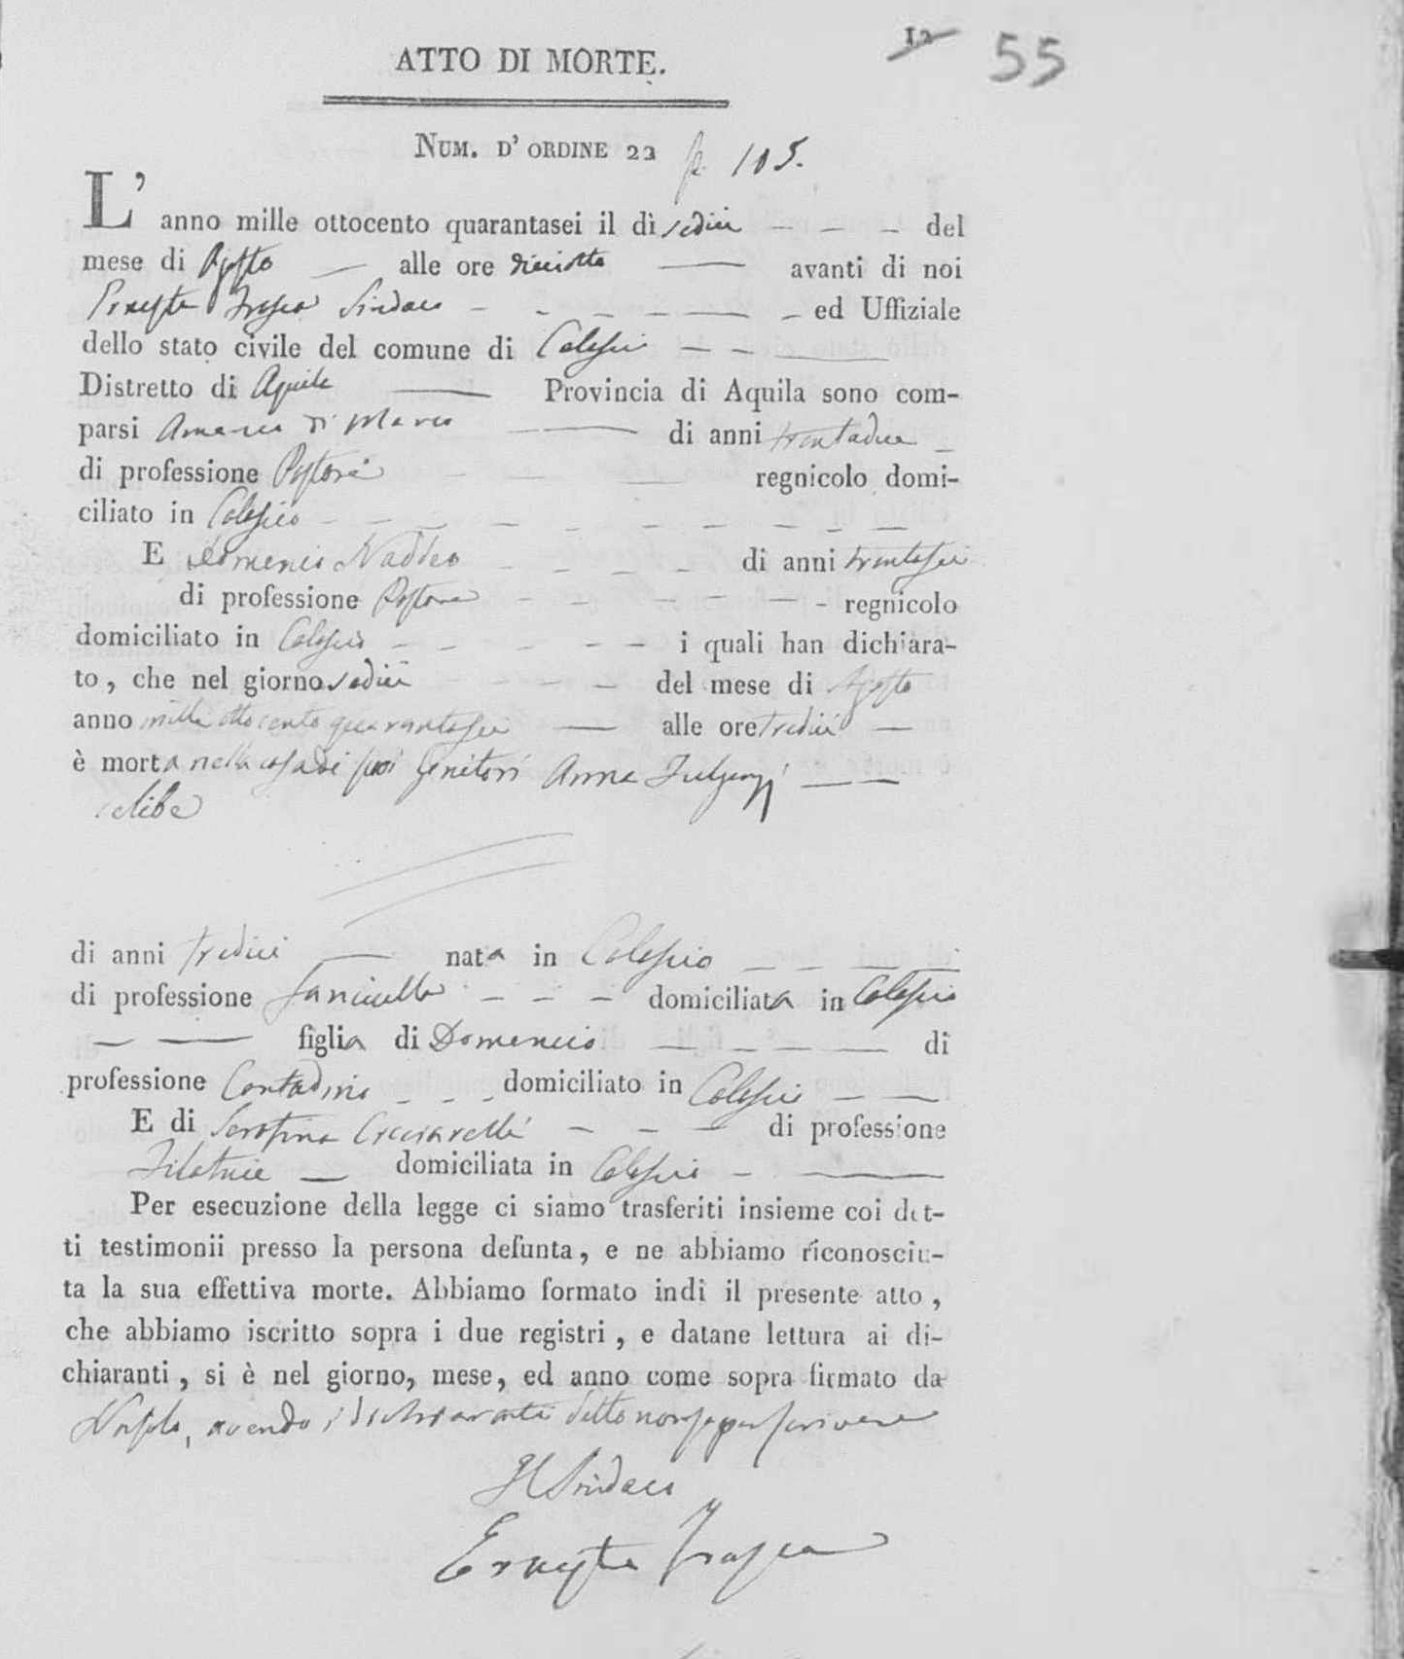 12 55
ATTO DI MORTE.
NUM. D' ORDINE 22 105.
L' anno mille ottocento quarantasei il dì sedici del
mese di Agosto alle ore diciotto avanti di noi
Ernesto Frasca Sindaco ed Uffiziale
dello stato civile del comune di Calascio
Distretto di Aquila Provincia di Aquila sono com-
parsi Amanzio di Marco di anni trentadue
di professione Pastore regnicolo domi-
ciliato in Calascio
E Domenico Naddeo di anni trentasei
di professione Pastore regnicolo
domiciliato in Calascio i quali han dichiara-
to, che nel giorno sedici del mese di Agosto
anno mille ottocento quarantasei alle ore tredici
è morta nella casa de' suoi genitori Anna Fulgenzj
celibe
di anni tredici nata in Calascio
di professione fanciulla domiciliata in Calascio
figlia di Domenico di
professione Contadino domiciliato in Calascio
E di Serafina Ciccarelli di professione
Filatrice domiciliata in Calascio
Per esecuzione della legge ci siamo trasferiti insieme coi det-
ti testimonii presso la persona defunta, e ne abbiamo riconosciu-
ta la sua effettiva morte. Abbiamo formato indi il presente atto,
che abbiamo iscritto sopra i due registri, e datane lettura ai di-
chiaranti, si è nel giorno, mese, ed anno come sopra firmato da
Noi solo, avendo i dichiaranti detto non saper scrivere
Il Sindaco
Ernesto Frasca